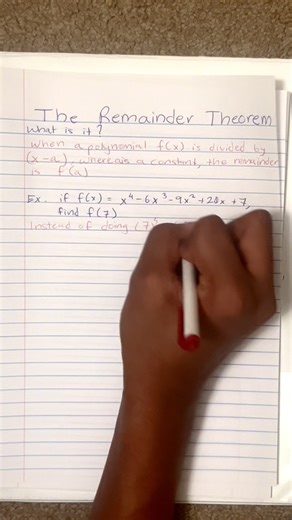 The Remainder Theorem
What is it?
When a polynomial f(x) is divided by
(x-a), where a is a constant, the remainder
is f(a)
Ex. if f(x) = x⁴-6x³-9x²+20x+7,
find f(7)
Instead of doing (7)